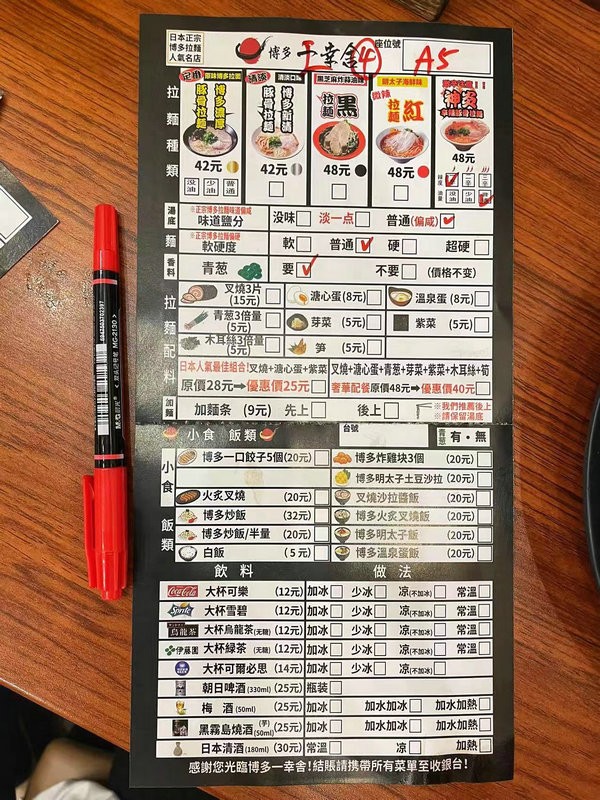 日本正宗
博多拉麵
人氣名店
博多 一幸舎 ④ 座位號 A5
拉麵種類
足心 原味博多拉面
博多濃厚
豚骨拉麵
42元
没油 少油 普通
清淡口味
博多新清
豚骨拉麵
42元
黑芝麻炸蒜油味
拉麵 黑
48元
明太子海鮮味
微辣
拉麵 紅
48元
神炎
48元
湯底 ※正宗博多拉麵味道偏咸
味道鹽分 没味 淡一点 普通(偏咸)
麵 ※正宗博多拉麵偏硬
軟硬度 軟 普通 硬 超硬
香料 青葱 要 不要 (價格不变)
拉麵配料
叉燒3片 (15元) 溏心蛋(8元) 溫泉蛋(8元)
青葱3倍量 (5元) 芽菜 (5元) 紫菜 (5元)
木耳絲3倍量 (5元) 笋 (5元)
日本人氣最佳組合!叉燒+溏心蛋+紫菜
原價28元➡優惠價25元
叉燒+溏心蛋+青葱+芽菜+紫菜+木耳絲+筍
奢華配餐 原價48元➡優惠價40元
加麵 加麵条 (9元) 先上 後上 ※我們推薦後上
※請保留湯底
小食 飯類 台號 青葱 有・無
小食 飯類
博多一口餃子5個(20元) 博多炸雞块3個 (20元)
博多明太子土豆沙拉 (20元)
火炙叉燒 (20元) 叉燒沙拉醬飯 (20元)
博多炒飯 (32元) 博多火炙叉燒飯 (20元)
博多炒飯/半量 (20元) 博多明太子飯 (20元)
白飯 (5元) 博多溫泉蛋飯 (20元)
飲料 做法
Coca-Cola 大杯可樂 (12元) 加冰 少冰 凉(不加冰) 常溫
Sprite 大杯雪碧 (12元) 加冰 少冰 凉(不加冰) 常溫
烏龍茶 大杯烏龍茶(无糖) (12元) 加冰 少冰 凉(不加冰) 常溫
伊藤園 大杯緑茶 (无糖) (12元) 加冰 少冰 凉(不加冰) 常溫
大杯可爾必思 (14元) 加冰 少冰 凉(不加冰)
朝日啤酒(330ml) (25元) 瓶装
梅 酒 (50ml) (25元) 加冰 加水加冰 加水加熱
黑霧島燒酒 (芋)(50ml) (25元) 加冰 加水加冰 加水加熱
日本清酒(180ml) (30元) 常溫 凉 加熱
感謝您光臨博多一幸舎!結賬請攜帶所有菜單至收銀台!
M&G MG-2130